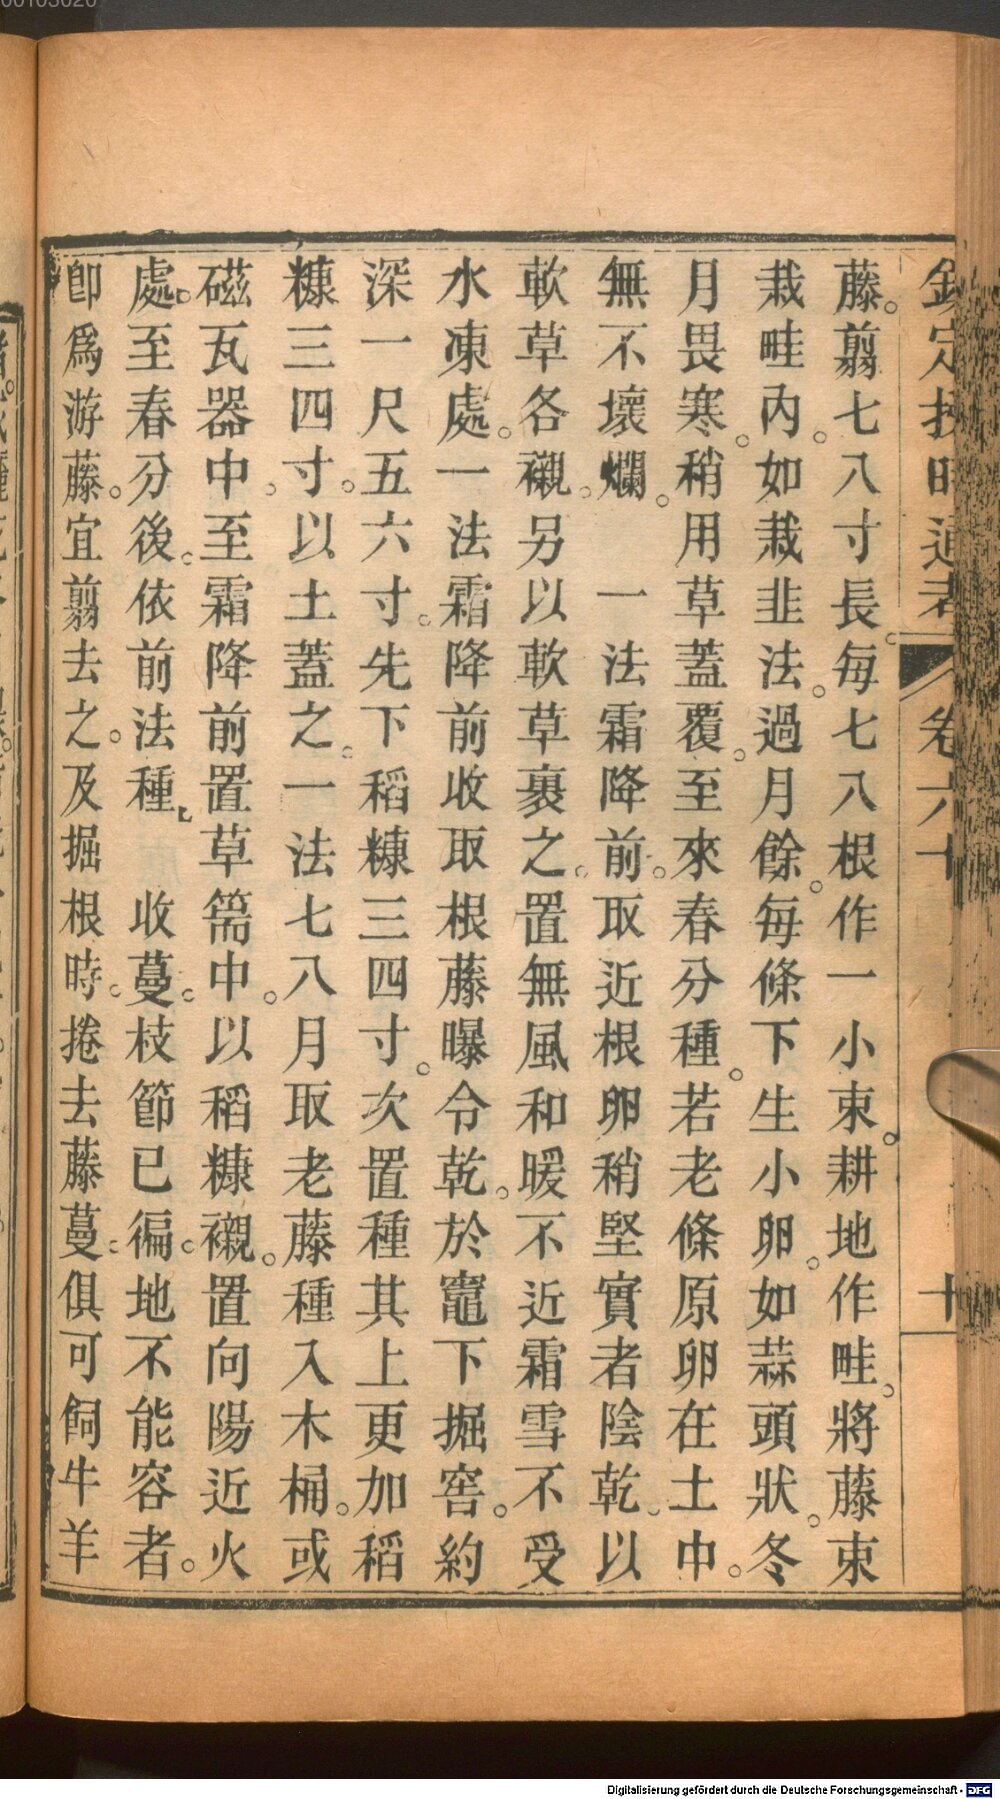 欽定授時通考 卷六十 十
藤。翦七八寸長。每七八根作一小束。耕地作畦。將藤束
栽畦內。如栽韭法。過月餘。每條下生小卵。如蒜頭狀。冬
月畏寒。稍用草蓋覆。至來春分種。若老條原卵在土中。
無不壞爛。 一法霜降前。取近根卵稍堅實者陰乾。以
軟草各襯。另以軟草裹之。置無風和暖不近霜雪不受
水凍處。一法霜降前收取根藤曝令乾。於竈下掘窖。約
深一尺五六寸。先下稻糠三四寸。次置種其上更加稻
糠三四寸。以土蓋之。一法七八月取老藤種入木桶。或
磁瓦器中。至霜降前置草篅中。以稻糠襯。置向陽近火
處。至春分後。依前法種。 收蔓。枝節已徧。地不能容者。
卽爲游藤。宜翦去之。及掘根時。捲去藤蔓。俱可飼牛羊
Digitalisierung gefördert durch die Deutsche Forschungsgemeinschaft - DFG